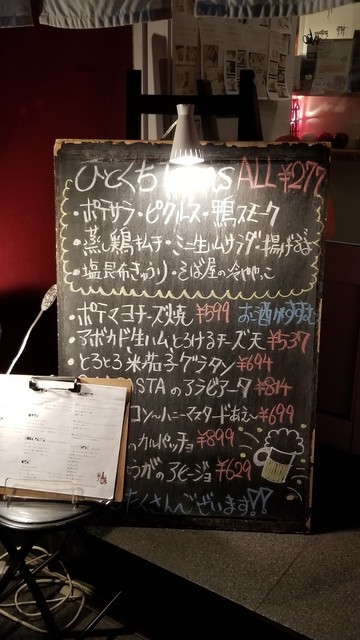 ひとくち ALL ¥277
・ポテサラ・ピクルス・鴨スモーク
・蒸し鶏キムチ・ミニ生ハムサラダ・揚げ
・塩昆布きゅうり・そば屋の冷やっこ
・ポテマヨチーズ焼 ¥599 お酒がすすむ
・アボカド生ハムとろけるチーズ天 ¥537
・とろとろ米茄子グラタン ¥694
STAのアラビアータ ¥814
コン〜ハニーマスタードあえ〜 ¥699
のカルパッチョ ¥899
のアヒージョ ¥629
たくさんございます!!